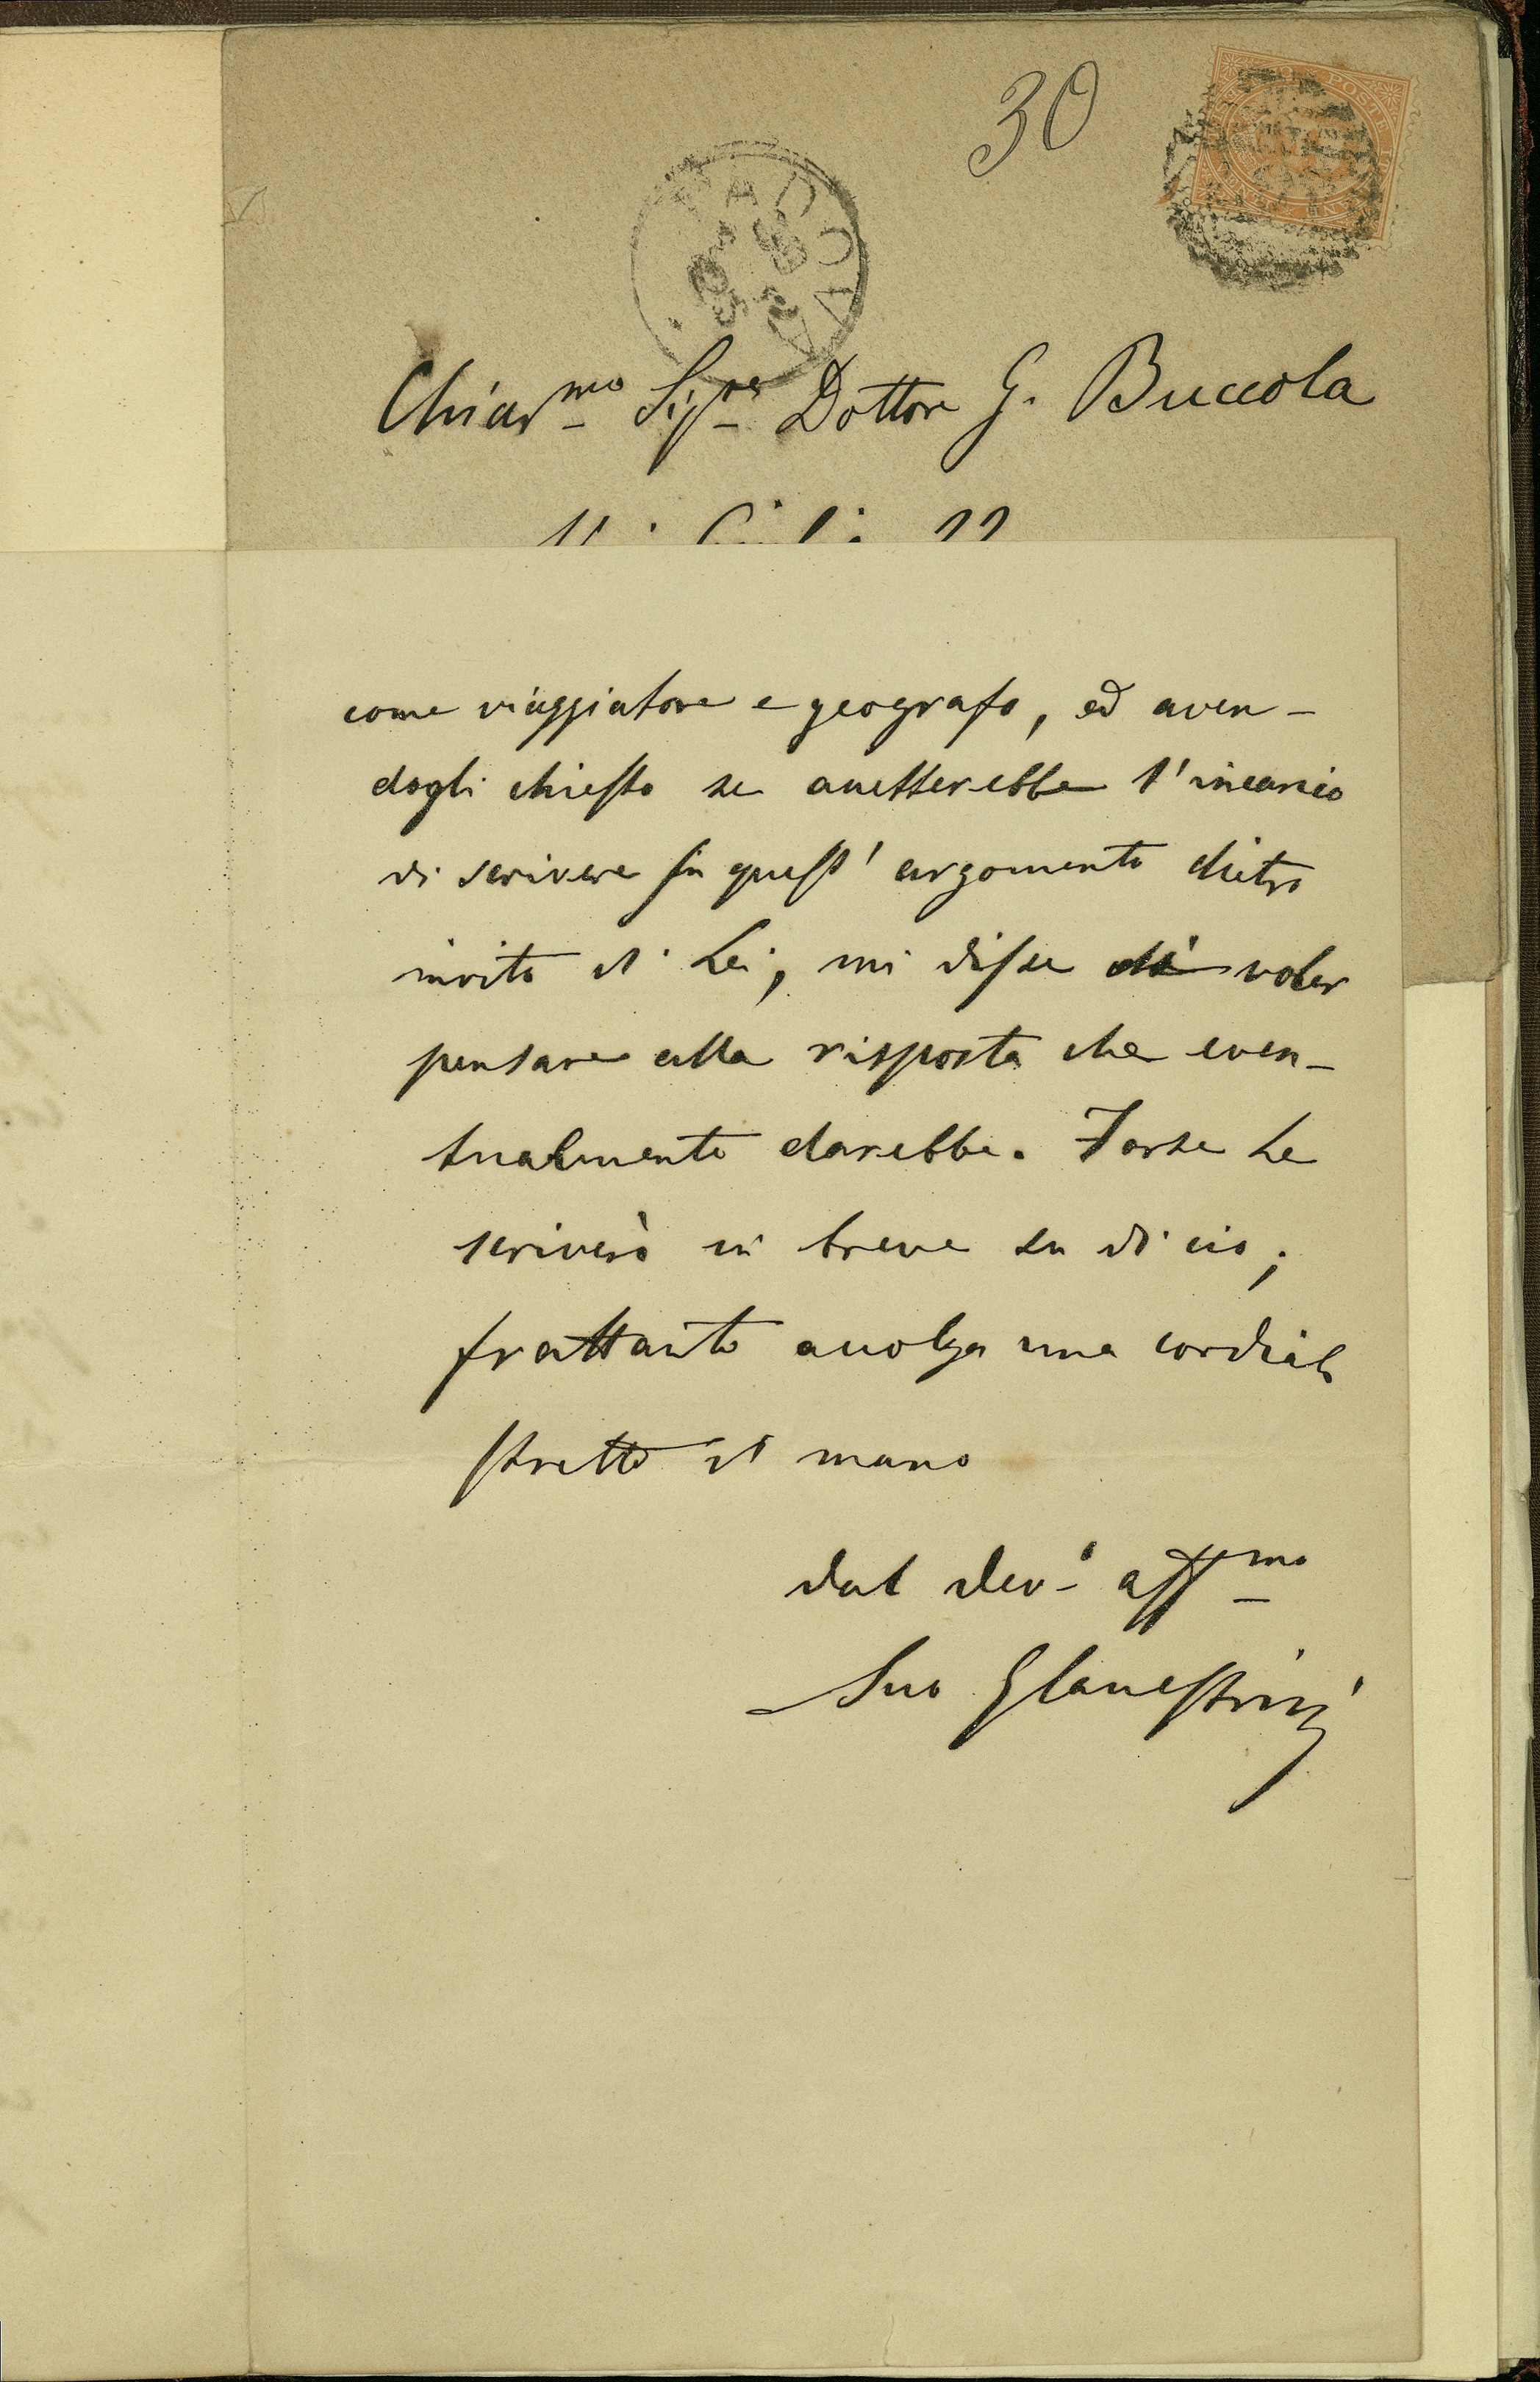 30
PADOVA
POSTE
Chiar.mo Sig.re Dottore G. Buccola
come viaggiatore e geografo, ed aven-
dogli chiesto se accetterebbe l'incarico
di scrivere su quest' argomento dietro
invito di Lei, mi disse di voler
pensare alla risposta che even-
tualmente darebbe. Forse Le
scriverò in breve su di ciò;
frattanto accolga una cordiale
stretta di mano
dal dev.o aff.mo
Suo GCanestrini